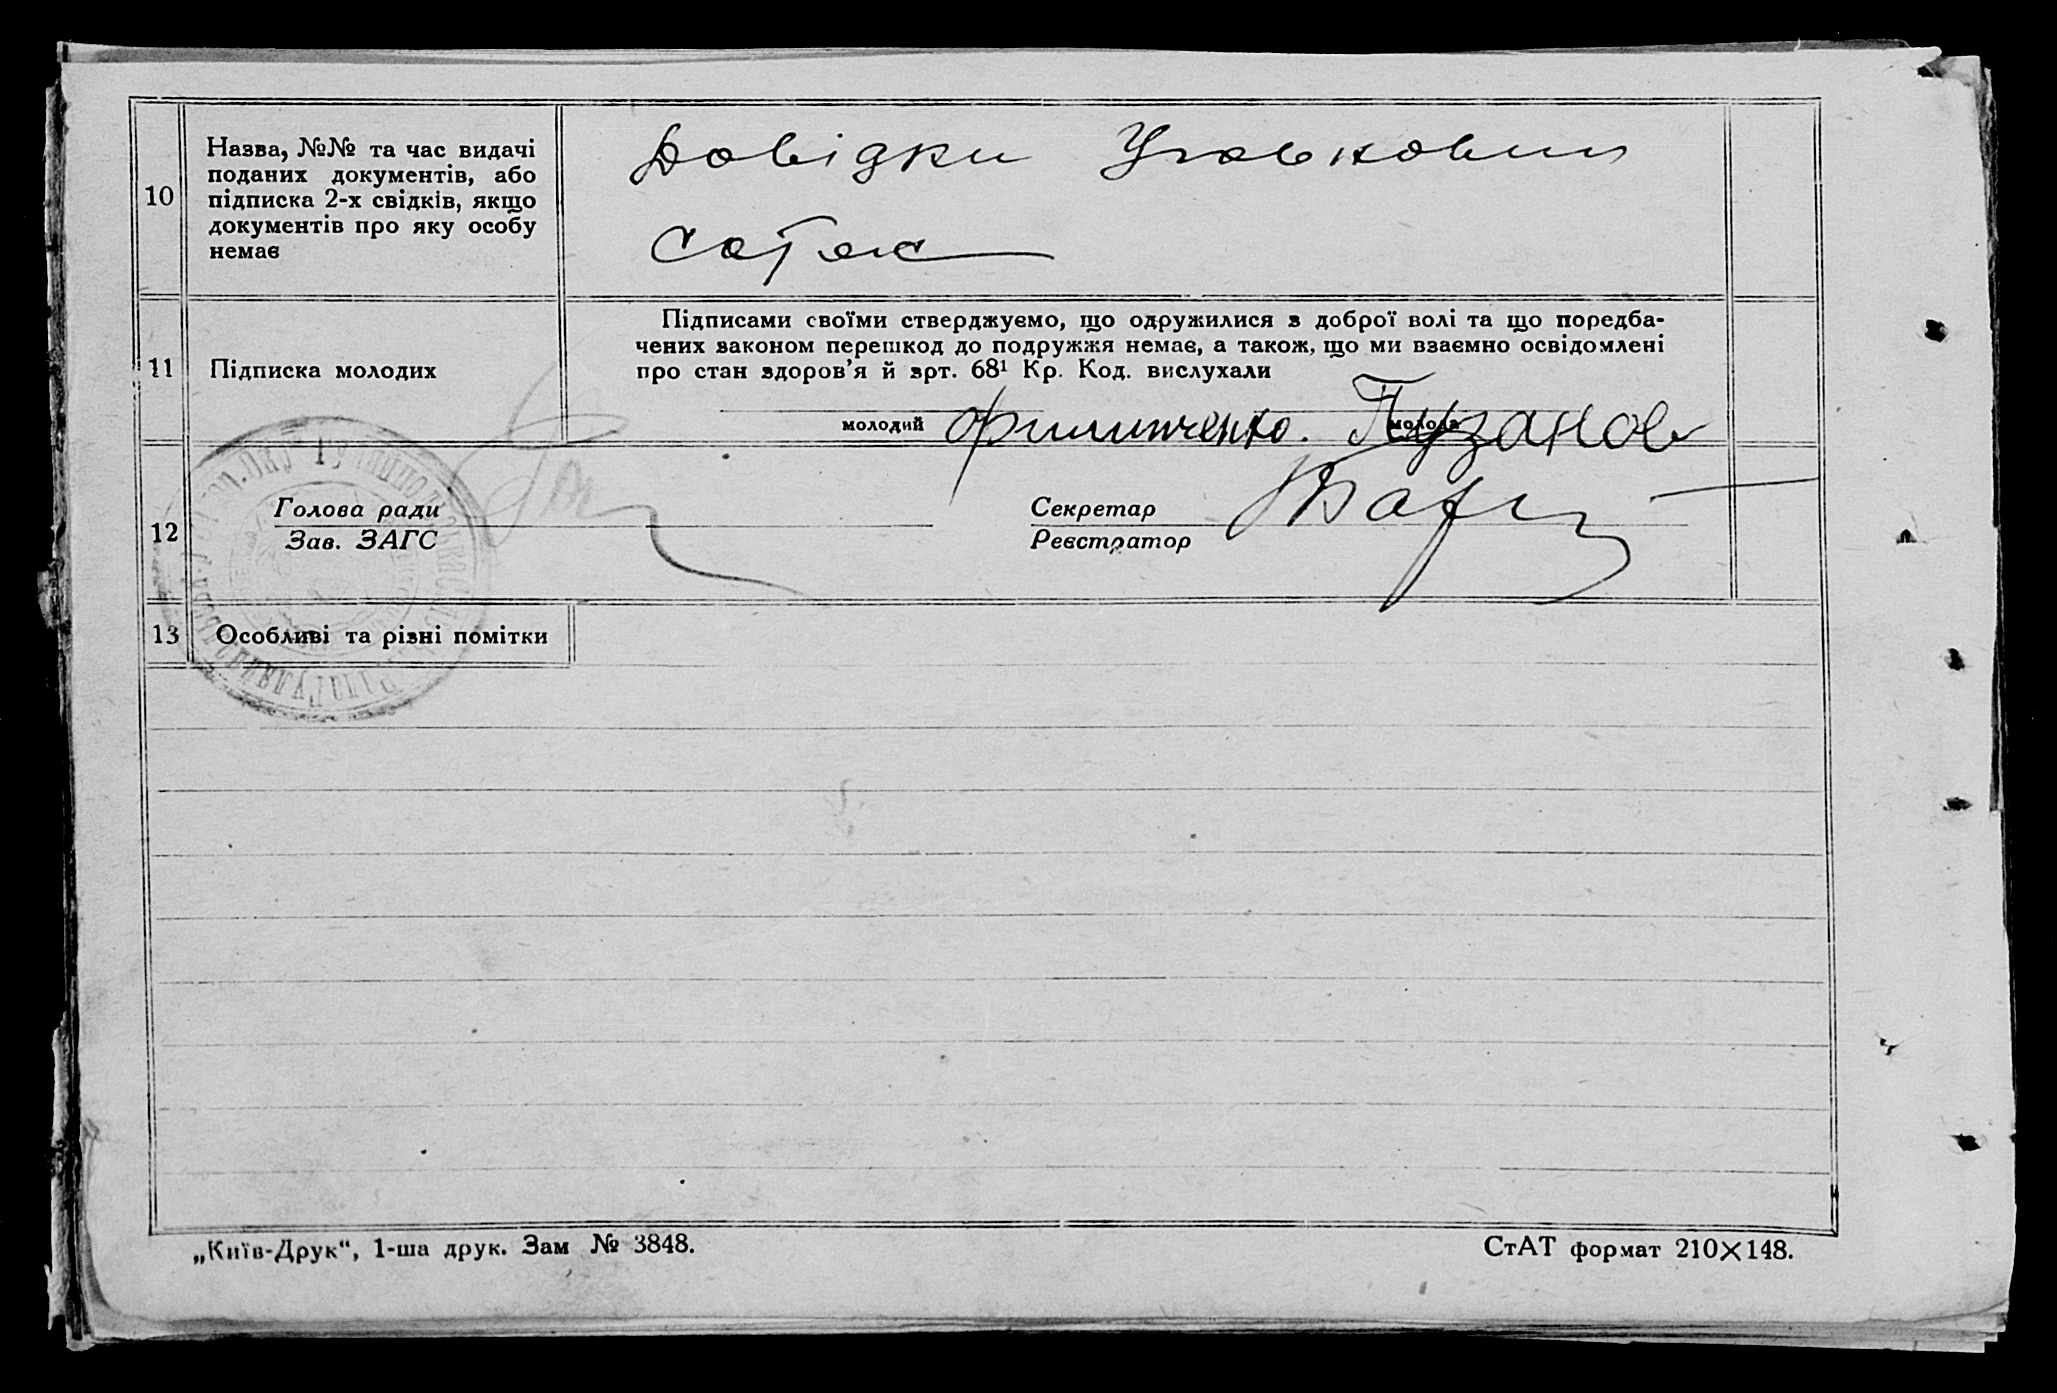 10
Назва, №№ та час видачі
поданих документів, або
підписка 2-х свідків, якщо
документів про яку особу
немає
Довідки
11
Підписка молодих
Підписами своїми стверджуємо, що одружилися з доброї волі та що поредба-
чених законом перешкод до подружжя немає, а також, що ми взаємно освідомлені
про стан здоров’я й арт. 68¹ Кр. Код. вислухали
молодий Филипченко. молода Пузанов
12
Голова ради
Зав. ЗАГС
Секретар
Реєстратор
13
Особливі та різні помітки
„Київ-Друк“, 1-ша друк. Зам № 3848.
СтАТ формат 210×148.